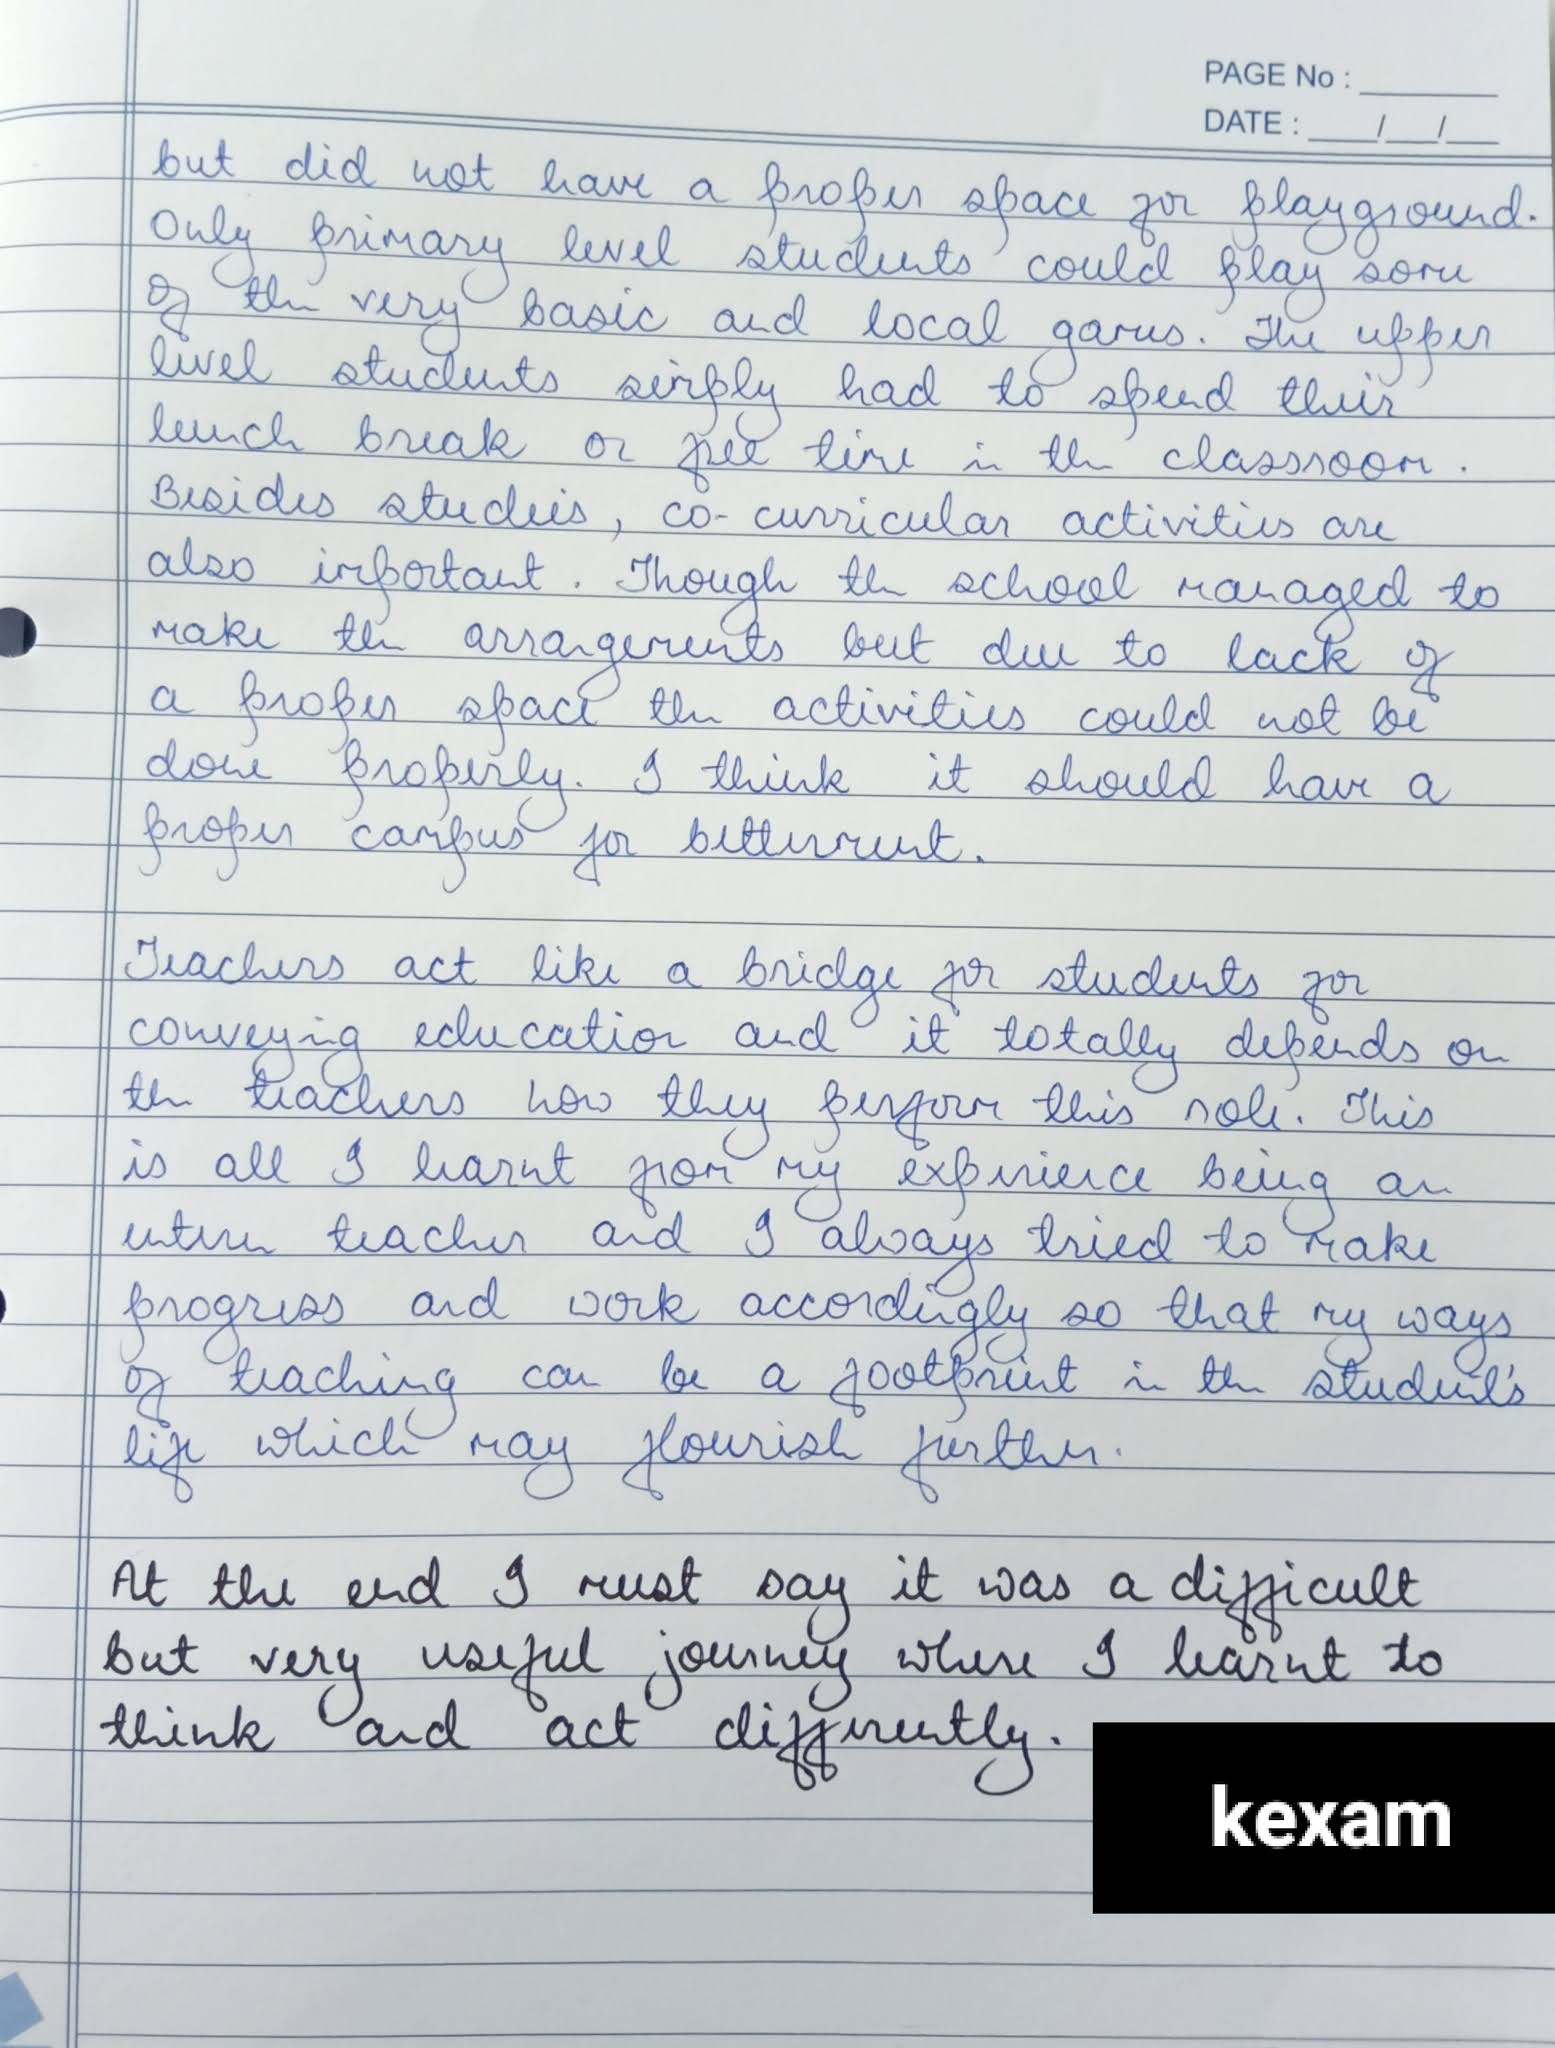 PAGE No :
DATE : / /
but did not have a proper space for playground.
Only primary level students could play some
of the very basic and local games. The upper
level students simply had to spend their
lunch break or free time in the classroom.
Besides studies, co-curricular activities are
also important. Though the school managed to
make the arrangements but due to lack of
a proper space the activities could not be
done properly. I think it should have a
proper campus for betterment.
Teachers act like a bridge for students for
conveying education and it totally depends on
the teachers how they perform this role. This
is all I learnt from my experience being an
intern teacher and I always tried to make
progress and work accordingly so that my ways
of teaching can be a footprint in the student's
life which may flourish further.
At the end I must say it was a difficult
but very useful journey where I learnt to
think and act differently.
kexam